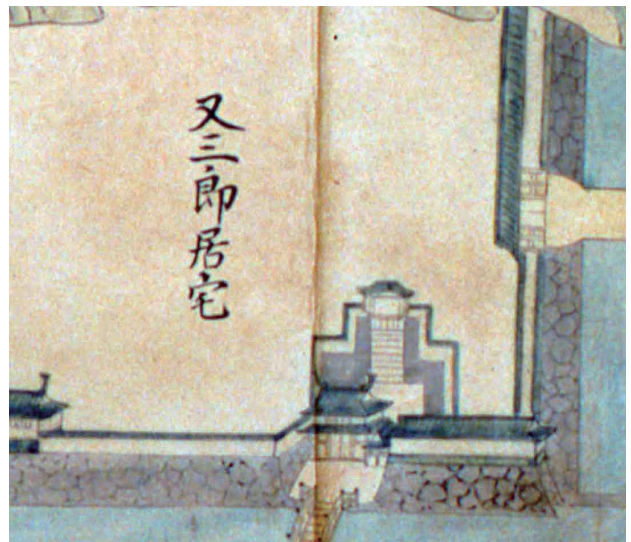 又三郎居宅